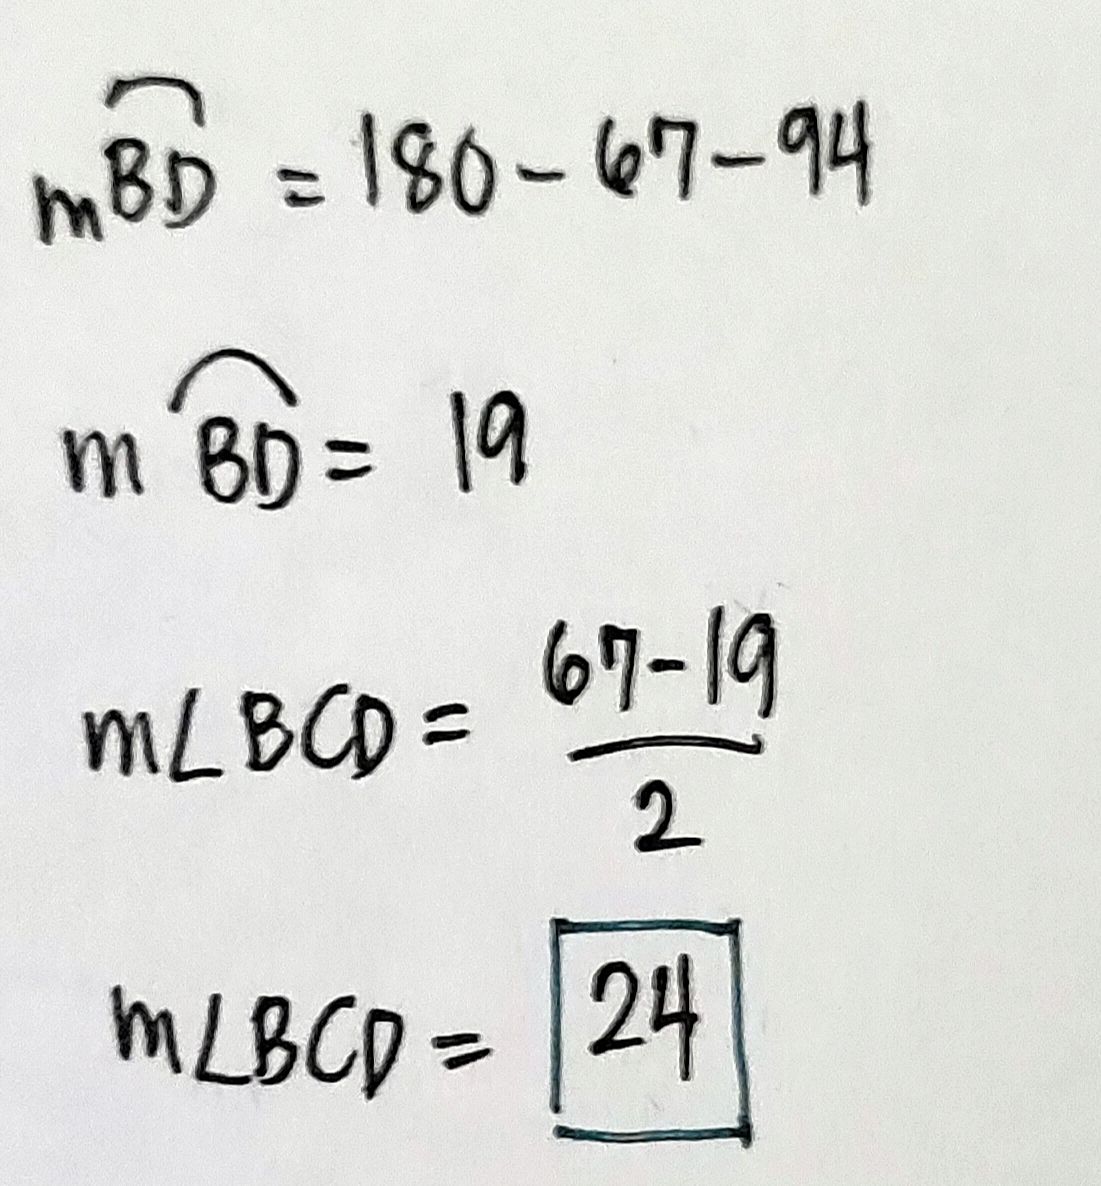 m⌒BD = 180 - 67 - 94
m⌒BD = 19
m∠BCD = 67-19
2
m∠BCD = 24